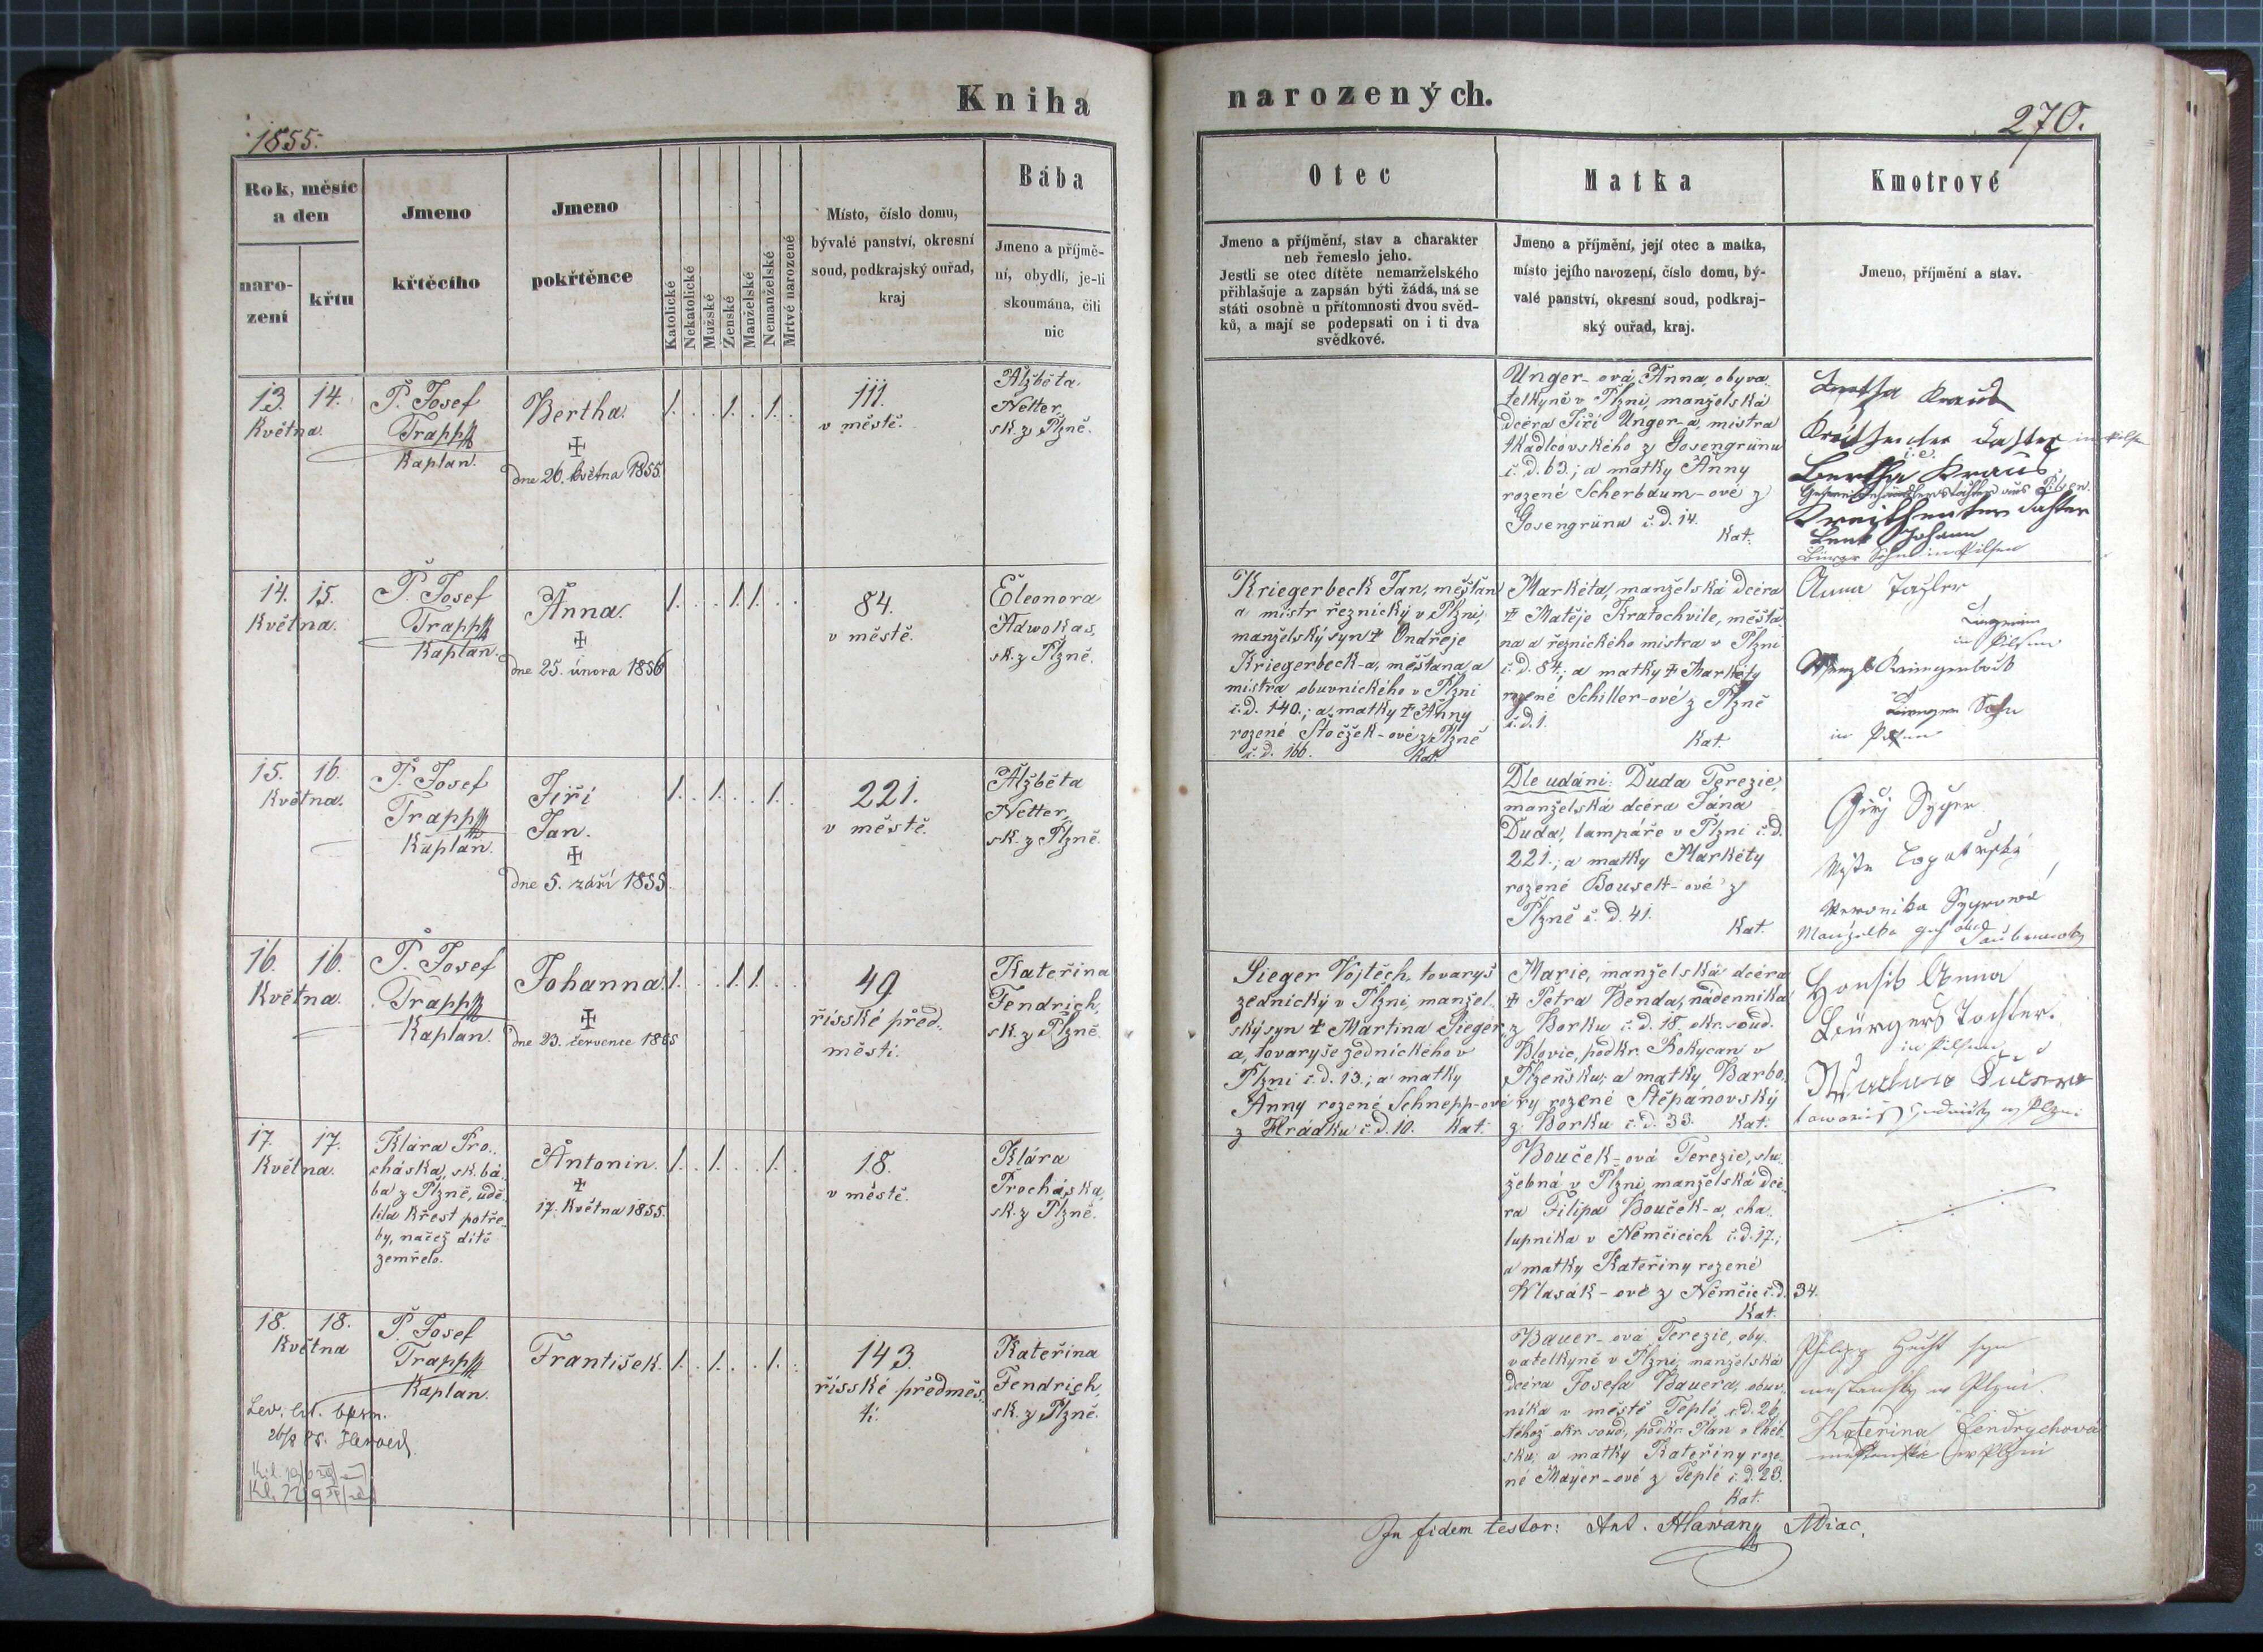 Kniha
narozených.
1855.
270.
Rok, měsíc
a den
naro-
zení
křtu
Jmeno
křtěcího
Jmeno
pokřtěnce
Katolické
Nekatolické
Mužské
Zenské
Manželské
Nemanželské
Mrtvé narozené
Místo, číslo domu,
bývalé panství, okresní
soud, podkrajský ouřad,
kraj
Bába
Jmeno a příjmě-
ní, obydlí, je-li
skoumána, čili
nic
Otec
Jmeno a příjmění, stav a charakter
neb řemeslo jeho.
Jestli se otec dítěte nemanželského
přihlašuje a zapsán býti žádá, má se
státi osobně u přítomnosti dvou svěd-
ků, a mají se podepsati on i ti dva
svědkové.
Matka
Jmeno a příjmění, její otec a matka,
místo jejího narození, číslo domu, bý-
valé panství, okresní soud, podkraj-
ský ouřad, kraj.
Kmotrové
Jmeno, příjmění a stav.
13. 14.
Května.
P. Josef
Trapp
Kaplan.
Bertha.
✝
dne 26. května 1855.
1. . . 1. . 1. .
111.
v městě.
Alžběta
Netter,
sk. z Plzně.
Unger-ová Anna, obyva-
telkyně v Plzni, manželská
dcéra Jiří Unger-a, mistra
tkadlcovského z Gosengrünu
č. d. 63.; a matky Anny
rozené Scherbaum-ové z
Gosengrünu č. d. 14.
Kat.
Bertha Kraus
i.e.
Bertha Kraus
aus Pilsen.
Johann
Bürger Sohn in Pilsen
14. 15.
Května.
P. Josef
Trapp
Kaplan.
Anna.
✝
dne 25. února 1856
1. . . 1. 1. . .
84.
v městě.
Eleonora
Adwokas,
sk. z Plzně.
Kriegerbeck Jan, měšťan
a mistr řeznický v Plzni,
manželský syn ✝ Ondřeje
Kriegerbeck-a, měšťana a
mistra obuvnického v Plzni
č. d. 140.; a matky ✝ Anny
rozené Stočžek-ové z Plzně
č. d. 166. Kat.
Markéta, manželská dcéra
✝ Matěje Kratochvile, měšťa-
na a řeznického mistra v Plzni
č. d. 84.; a matky ✝ Markéty
rozené Schiller-ové z Plzně
č. d. 1.
Kat.
Anna
in Pilsen
Sohn
in Pilsen
15. 16.
Května.
P. Josef
Trapp
Kaplan.
Jiří
Jan.
✝
dne 5. září 1855.
1. . 1. . . 1. .
221.
v městě.
Alžběta
Netter,
sk. z Plzně.
Dle udání: Duda Terezie,
manželská dcéra Jána
Duda, lampáře v Plzni č. d.
221.; a matky Markéty
rozené Bousek-ové z
Plzně č. d. 41.
Kat.
Veronika
Manželka
16. 16.
Května.
P. Josef
Trapp
Kaplan.
Johanna.
✝
dne 23. července 1855
1. . . 1. 1. . .
49
řísské před-
městí.
Kateřina
Fendrich,
sk. z Plzně.
Sieger Vojtěch, tovaryš
zednický v Plzni, manžel-
ský syn ✝ Martina Sieger-
a, tovaryše zednického v
Plzni č. d. 13.; a matky
Anny rozené Schnepp-ové
z Hrádku č. d. 10. Kat.
Marie, manželská dcéra
✝ Petra Benda, nádenníka
z Borku č. d. 18. okr. soud.
Blovic, podkr. Rokycan v
Plzeňsku; a matky Barbo-
ry rozené Štěpánovský
z Borku č. d. 33. Kat.
Anna
Bürgers Tochter.
in Pilsen
17. 17.
Května.
Klára Pro-
cháska, sk. bá-
ba z Plzně, udě-
lila křest potře-
by, načež dítě
zemřelo.
Antonín.
✝
17. Května 1855.
1. . 1. . . 1. .
18.
v městě.
Klára
Procháska,
sk. z Plzně.
Bouček-ová Terezie, slu-
žebná v Plzni, manželská dcé-
ra Filipa Bouček-a, cha-
lupníka v Němčicích č. d. 17.;
a matky Kateřiny rozené
Wlasák-ové z Němčic č. d. 34.
Kat.
18. 18.
Května
P. Josef
Trapp
Kaplan.
František.
1. . 1. . . 1. .
143.
řísské předměs-
tí.
Kateřina
Fendrich,
sk. z Plzně.
Bauer-ová Terezie, oby-
vatelkyně v Plzni, manželská
dcéra Josefa Bauera, obuv-
níka v městě Teplé č. d. 26.
téhož okr. soud., podkr. Plan v Cheb-
sku; a matky Kateřiny roze-
né Mayer-ové z Teplé č. d. 23.
Kat.
syn
w Plzni.
Kateřina Fendrychová
w Plzni
In fidem testor: Ant. Hlawan